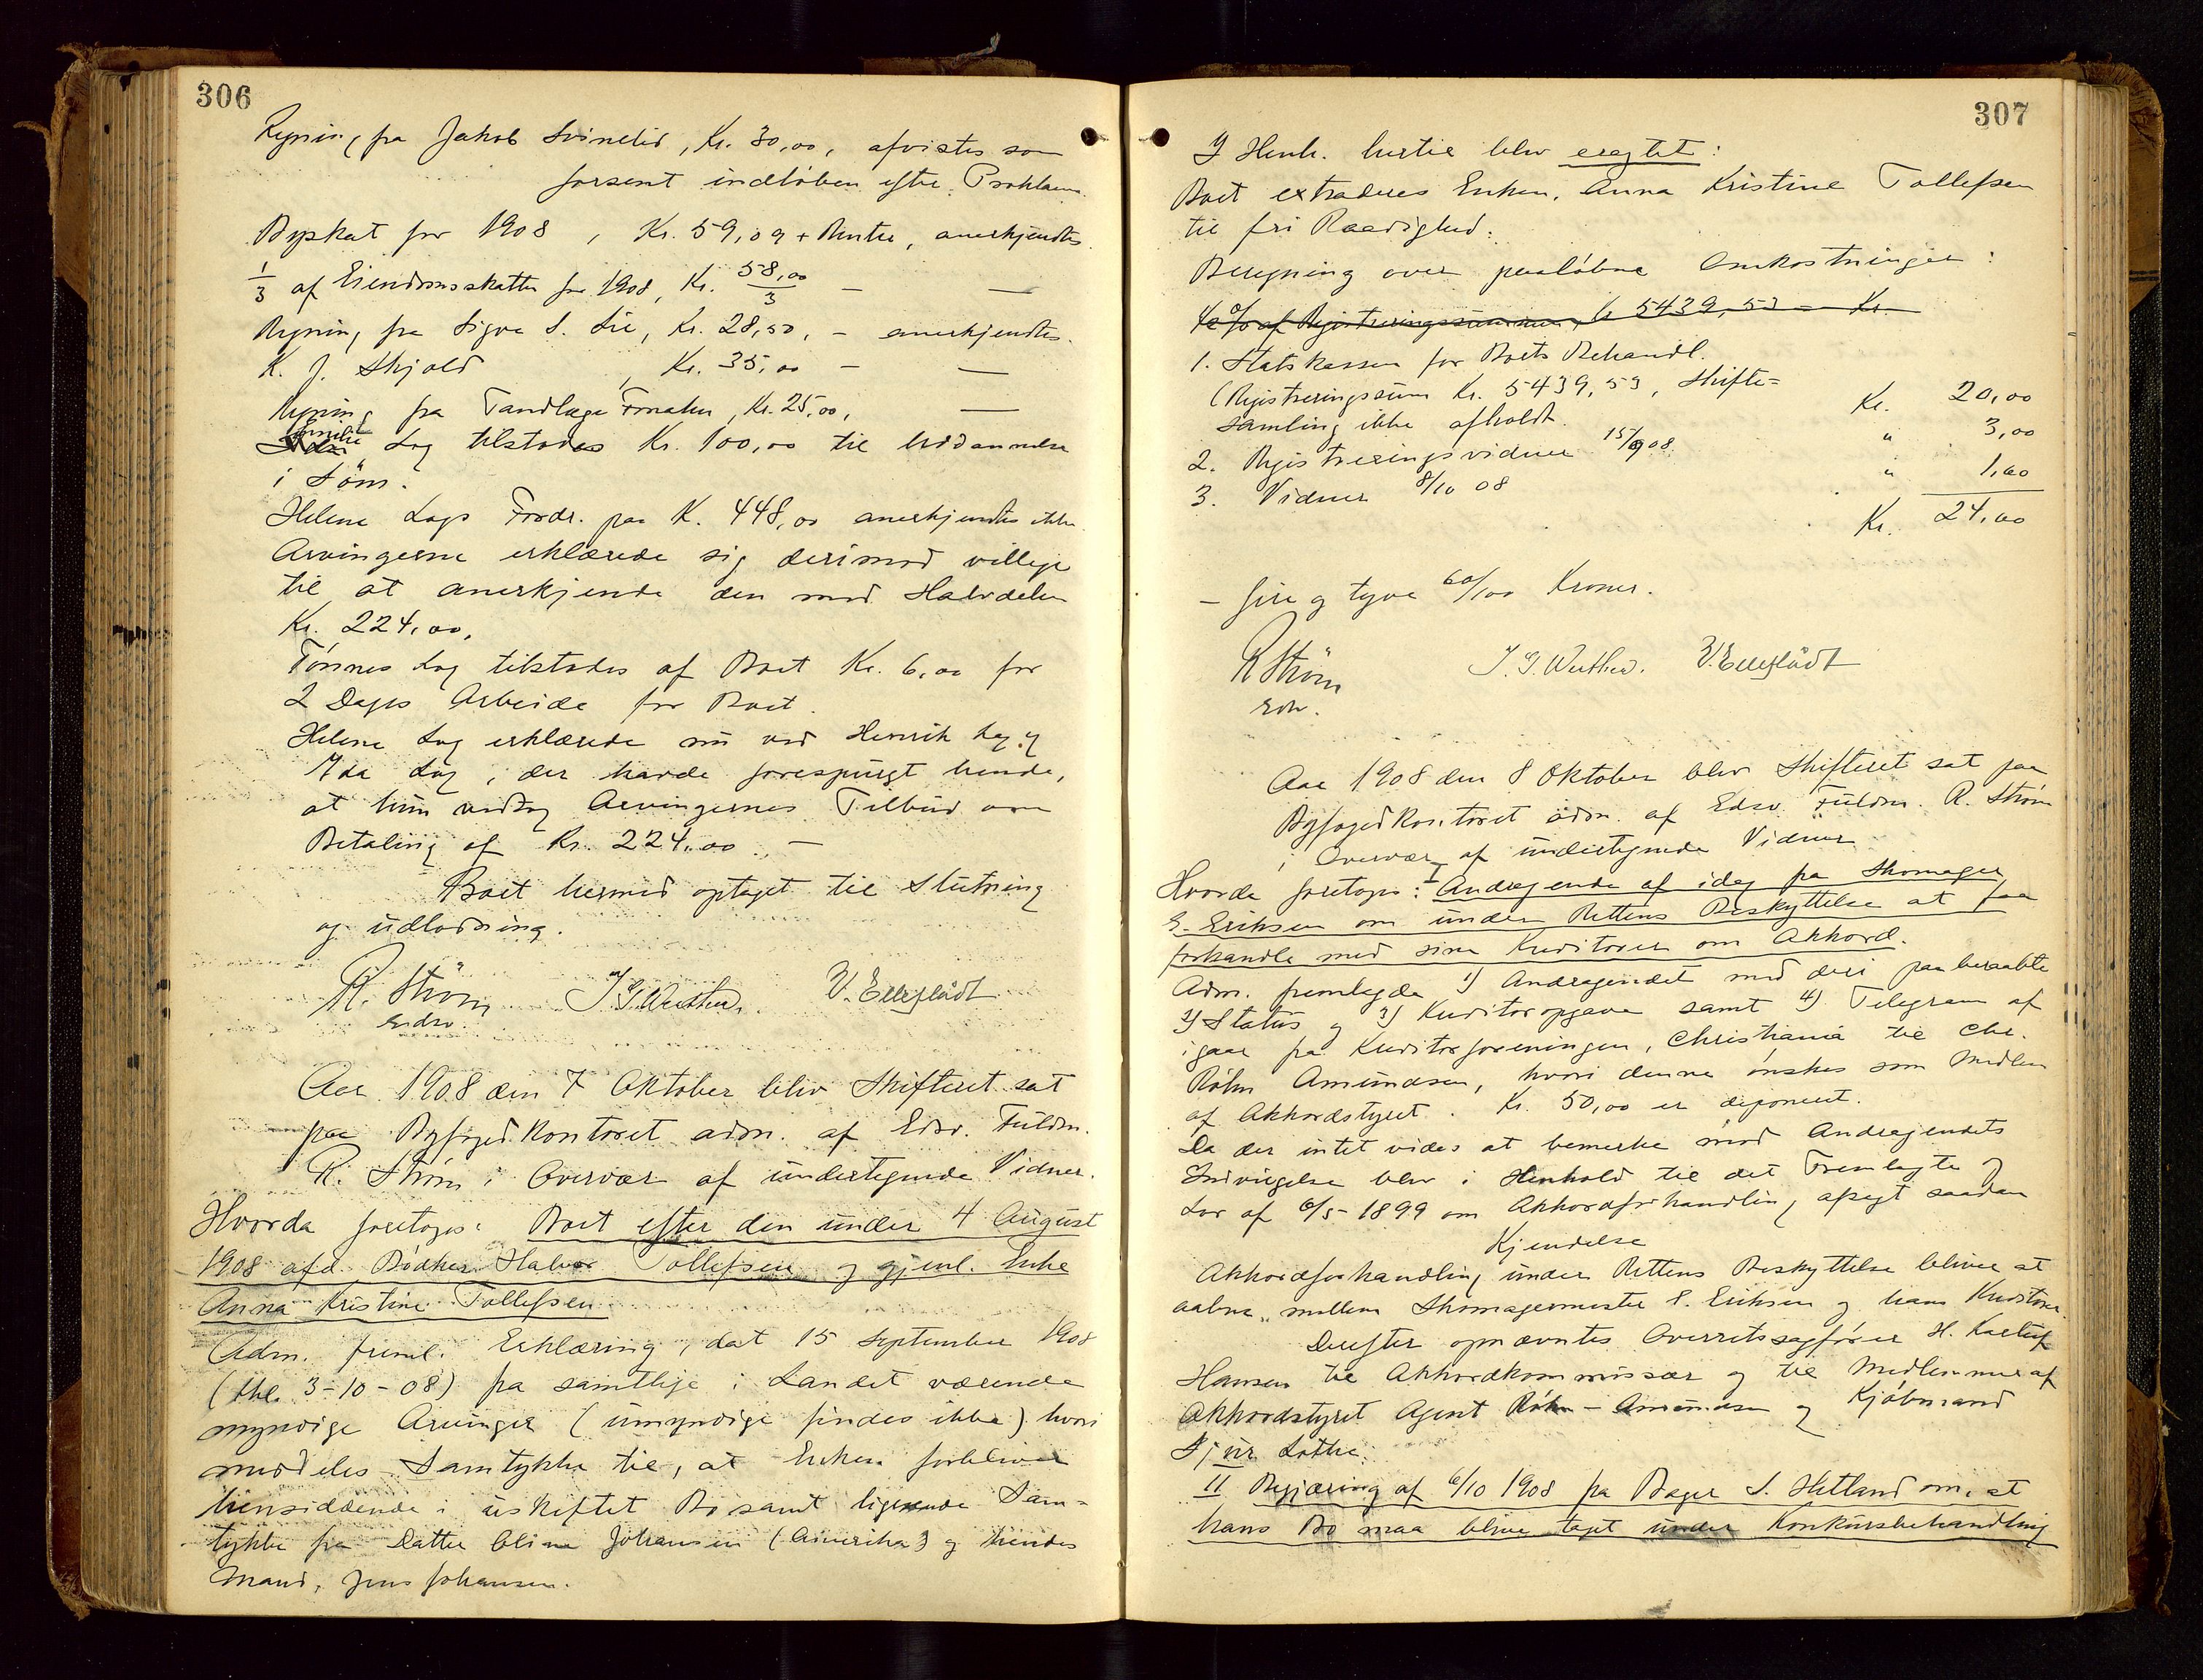 306
Regning fra Jakob Svinelid, Kr. 30,00, afvistes som
forsent indløben efter Proklama.
Byskat for 1908, Kr. 59,09 + Renter, anerkjendtes.
1/3 af Eiendomsskatten for 1908, Kr. 58,00/3 — —
Regning fra Sigva S. Lie, Kr. 28,50, - anerkjendtes.
K. J. Skjold, Kr. 35,00 — —
Regning fra Tandlæge Kr. 25,00, —
Emilie Log tilstodes Kr. 100,00 til Uddannelse
i Søm.
Helene Logs Fordr. paa K. 448,00 anerkjendtes ikke.
Arvingerne erklærede sig derimod villige
til at anerkjende den med Halvdelen
Kr. 224,00.
Tønnes Log tilstodes af Boet Kr. 6,00 for
2 Dages Arbeide for Boet.
Helene Log erklærede nu ved Henrik Log og
Ida Log, der havde forespurgt hende,
at hun vedtog Arvingernes Tilbud om
Betaling af Kr. 224,00. —
Boet hermed optaget til Slutning
og udlodning.
R. Strøm J G Wuther. V. Ellefsådt
Edsv.
Aar 1908 den 7 Oktober blev Skifteret sat
paa Byfogedkontoret adm. af Edsv. Fuldm.
R. Strøm i Overvær af undertegnede Vidner.
Hvorda foretoges: Boet efter den under 4 August
1908 afd. Bødker Halvor Tollefsen og gjenl. Enke
Anna Kristine Tollefsen
Adm. freml. Erklæring, dat 15 September 1908
(thl. 3-10-08) fra samtlige i Landet værende
myndige Arvinger (umyndige findes ikke) hvori
meddeles Samtykke til, at Enken forbliver
hensiddende i uskiftet Bo samt ligesende Sam=
tykke fra Datter Johansen (Amerika) og hendes
Mand, Jens Johansen.
307
I Henh. hertil blev eragtet:
Boet extraderes Enken, Anna Kristine Tollefsen
til fri Raadighed.
Beregning over paaløbne Omkostninger:
½ % af Registreringssummen, Kr 5439,53 = Kr.
1. Statskassen for Boets Behandl.
(Registreringssum Kr. 5439,53, Skifte=
samling ikke afholdt. Kr. 20,00
2. Registreringsvidner 15/9 08. " 3,00
3. Vidner 8/10 08 " 1,60
Kr. 24,60
— fire og tyve 60/100 Kroner.
R Strøm J. G. Wuther. V. Ellefsådt
Edsv.
Aar 1908 den 8 Oktober blev Skifteret sat paa
Byfogedkontoret adm. af Edsv. Fuldm. R. Strøm
i Overvær af undertegnede Vidner
Hvorda foretoges: I Andragende af idag fra Skomager
E. Eriksen om under Rettens Beskyttelse at faa
forhandle med sine Kreditorer om Akkord.
Adm. fremlagde 1) Andragendet med deri paaberaabte
2) Status og 3) Kreditoropgave samt 4) Telegram af
igaar fra Kreditorforeningen, Christiania til Chr.
Røhn Amundsen, hvori denne ønskes som Medlem
af Akkordstyret. Kr. 50,00 er deponeret.
Da der intet vides at bemerke mod Andragendets
Indvilgelse blev i Henhold til det Fremlagte og
Lov af 6/5-1899 om Akkordforhandling afsagt saadan
Kjendelse
Akkordforhandling under Rettens Beskyttelse bliver at
aabne mellem Skomagermester E. Eriksen og hans Kreditorer.
Derefter opnævntes Overretssagfører H. Kastrup
Hansen til Akkordkommissær og til Medlemmer af
Akkordstyret Agent Røhn-Amundsen og Kjøbmand
Sjur Lothe.
II Begjæring af 6/10 1908 fra Bager S. Hetland om, at
hans Bo maa blive taget under Konkursbehandling